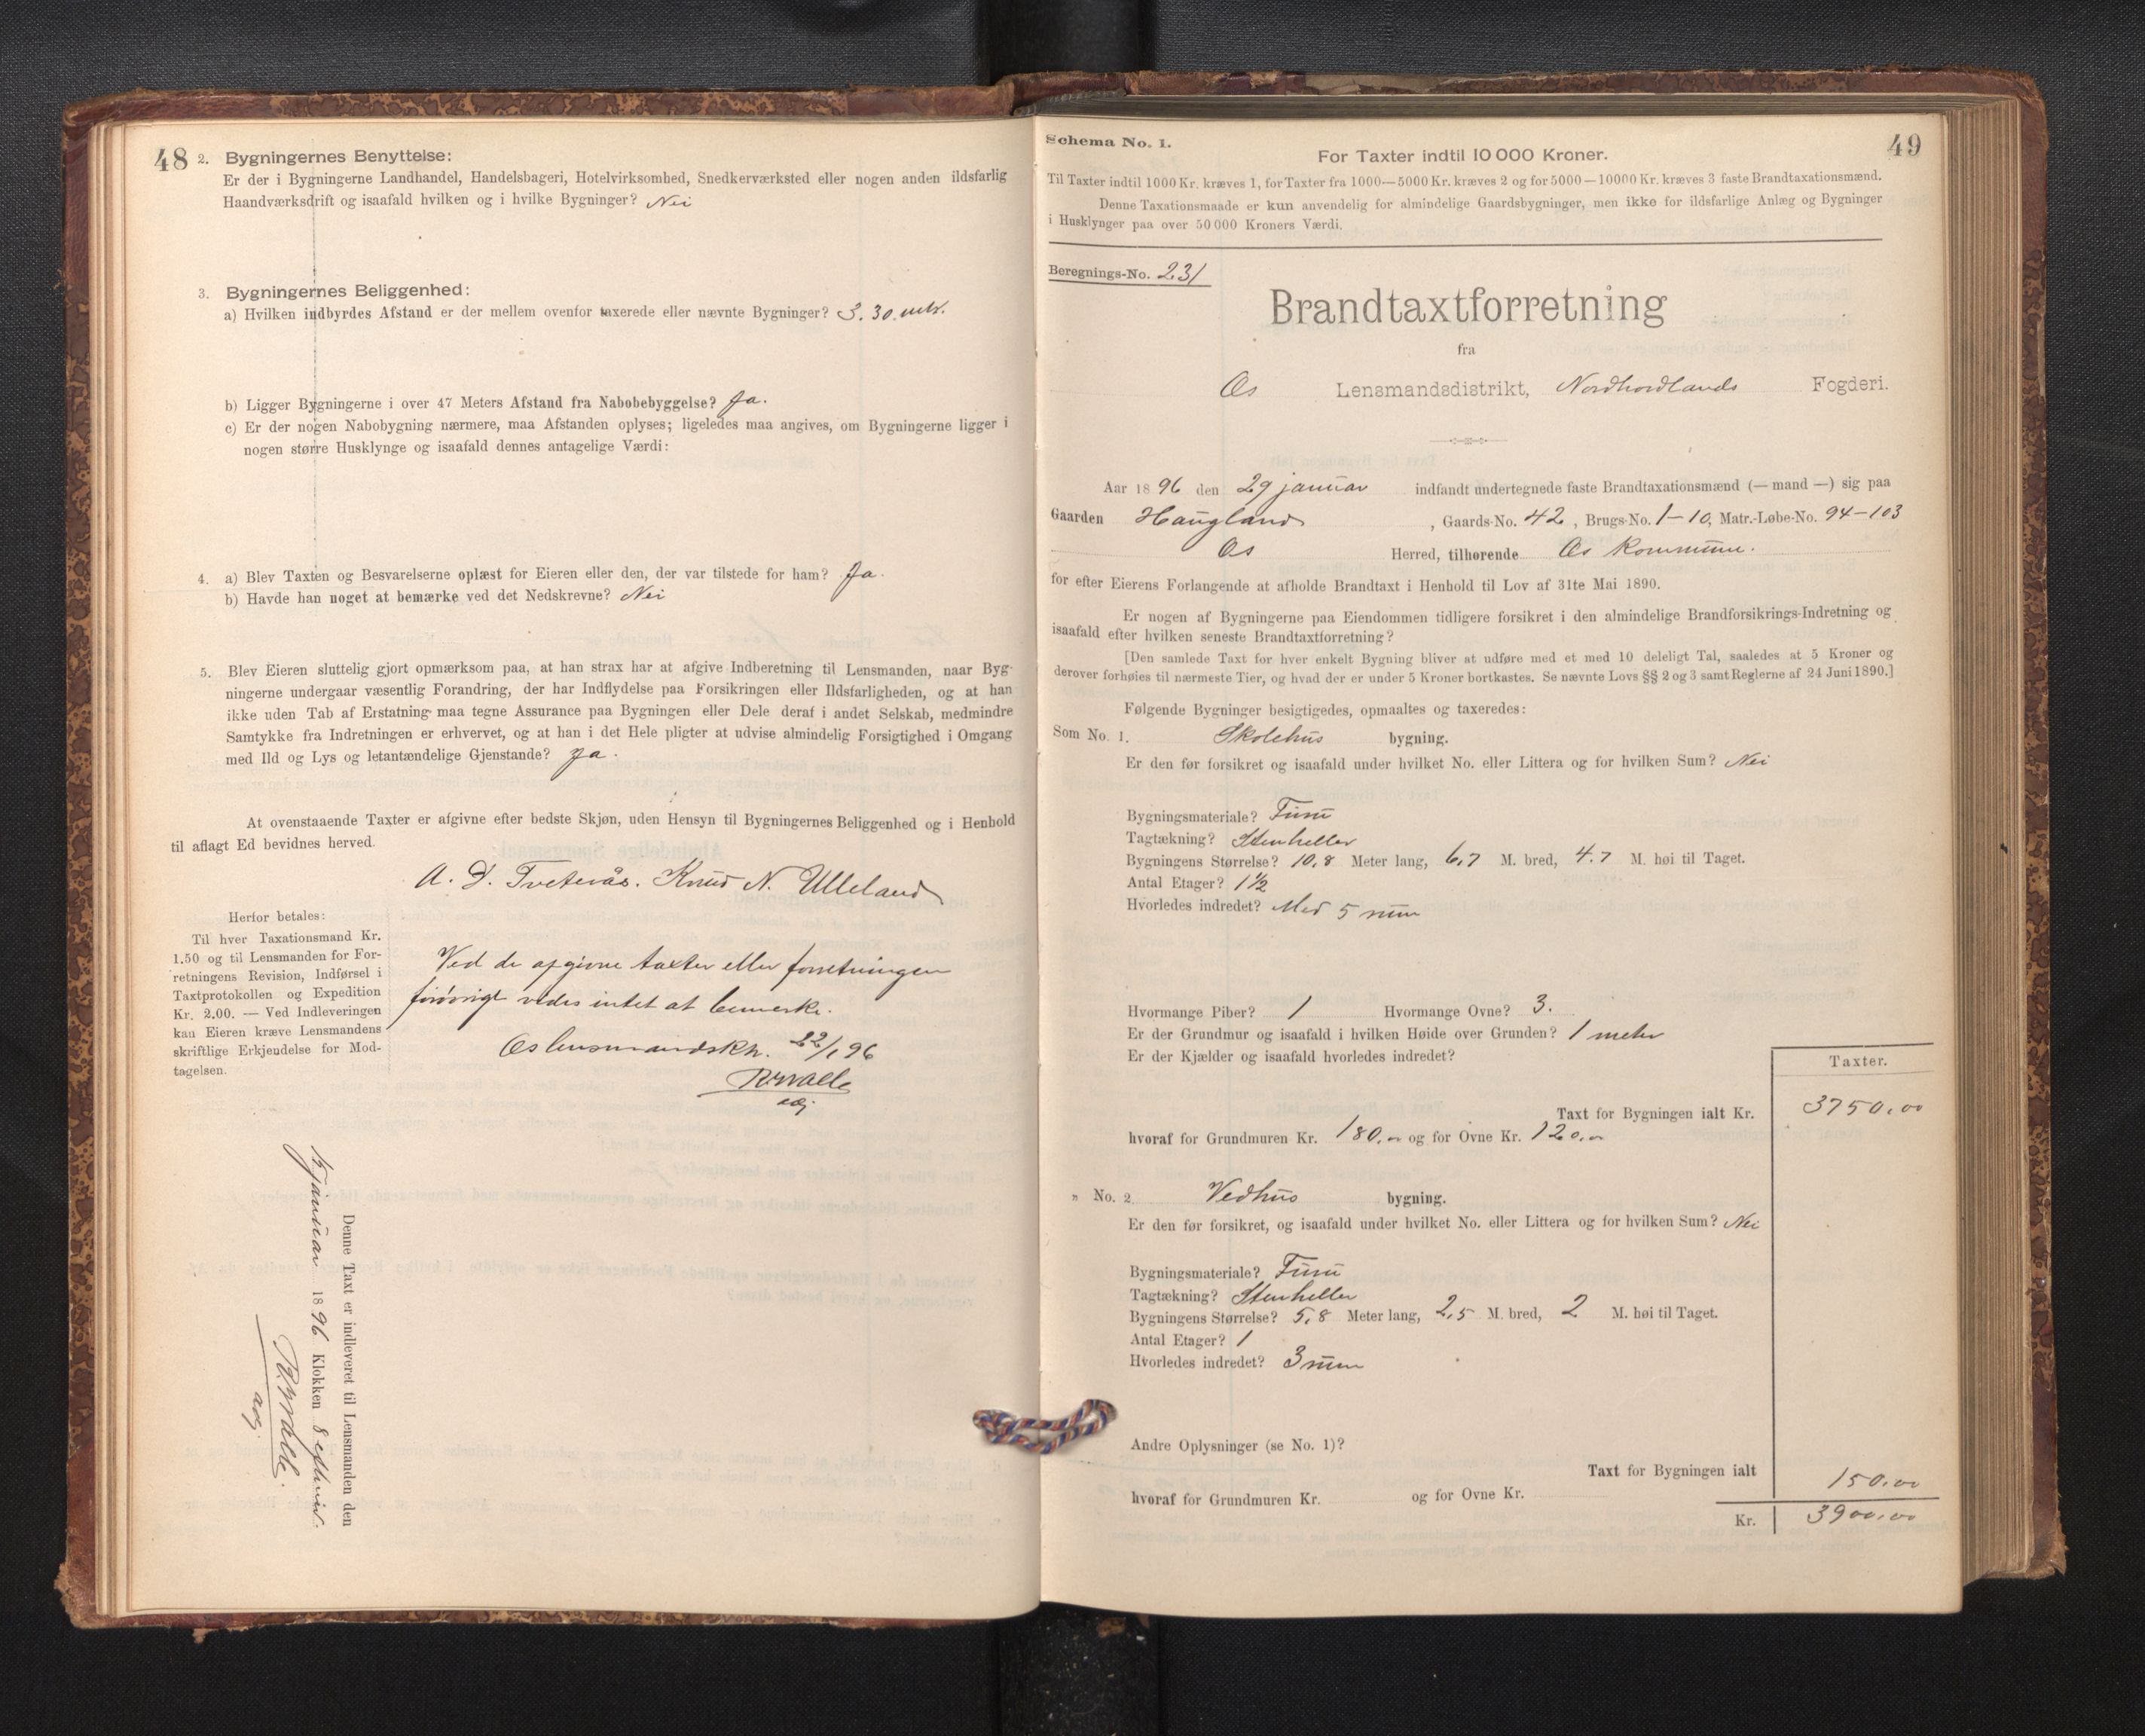 48 2. Bygningernes Benyttelse:
Er der i Bygningerne Landhandel, Handelsbageri, Hotelvirksomhed, Snedkerværksted eller nogen anden ildsfarlig
Haandværksdrift og isaafald hvilken og i hvilke Bygninger? Nei
3. Bygningernes Beliggenhed:
a) Hvilken indbyrdes Afstand er der mellem ovenfor taxerede eller nævnte Bygninger? 3.30 mtr.
b) Ligger Bygningerne i over 47 Meters Afstand fra Nabobebyggelse? Ja.
c) Er der nogen Nabobygning nærmere, maa Afstanden oplyses; ligeledes maa angives, om Bygningerne ligger i
nogen større Husklynge og isaafald dennes antagelige Værdi:
4. a) Blev Taxten og Besvarelserne oplæst for Eieren eller den, der var tilstede for ham? Ja.
b) Havde han noget at bemærke ved det Nedskrevne? Nei
5. Blev Eieren sluttelig gjort opmærksom paa, at han strax har at afgive Indberetning til Lensmanden, naar Byg-
ningerne undergaar væsentlig Forandring, der har Indflydelse paa Forsikringen eller Ildsfarligheden, og at han
ikke uden Tab af Erstatning maa tegne Assurance paa Bygningen eller Dele deraf i andet Selskab, medmindre
Samtykke fra Indretningen er erhvervet, og at han i det Hele pligter at udvise almindelig Forsigtighed i Omgang
med Ild og Lys og letantændelige Gjenstande? Ja.
At ovenstaaende Taxter er afgivne efter bedste Skjøn, uden Hensyn til Bygningernes Beliggenhed og i Henhold
til aflagt Ed bevidnes herved.
A. D. Tveterås. Knud N. Ulleland
Herfor betales:
Til hver Taxationsmand Kr.
1.50 og til Lensmanden for For-
retningens Revision, Indførsel i
Taxtprotokollen og Expedition
Kr. 2.00. — Ved Indleveringen
kan Eieren kræve Lensmandens
skriftlige Erkjendelse for Mod-
tagelsen.
Ved de afgivne taxter eller forretningen
forøvrigt vides intet at bemerke.
Os lensmandskh. 22/1 96
Denne Taxt er indleveret til Lensmanden den
januar 1896 Klokken 8
Schema No. 1. 49
For Taxter indtil 10 000 Kroner.
Til Taxter indtil 1000 Kr. kræves 1, for Taxter fra 1000—5000 Kr. kræves 2 og for 5000—10000 Kr. kræves 3 faste Brandtaxationsmænd.
Denne Taxationsmaade er kun anvendelig for almindelige Gaardsbygninger, men ikke for ildsfarlige Anlæg og Bygninger
i Husklynger paa over 50 000 Kroners Værdi.
Beregnings-No. 231
Brandtaxtforretning
fra
Os Lensmandsdistrikt, Nordhordlands Fogderi.
Aar 1896 den 29 januar indfandt undertegnede faste Brandtaxationsmænd (— mand —) sig paa
Gaarden Haugland, Gaards-No. 42, Brugs-No. 1–10, Matr.-Løbe-No. 94–103
Os Herred, tilhørende Os Kommune.
for efter Eierens Forlangende at afholde Brandtaxt i Henhold til Lov af 31te Mai 1890.
Er nogen af Bygningerne paa Eiendommen tidligere forsikret i den almindelige Brandforsikrings-Indretning og
isaafald efter hvilken seneste Brandtaxtforretning?
[Den samlede Taxt for hver enkelt Bygning bliver at udføre med et med 10 deleligt Tal, saaledes at 5 Kroner og
derover forhøies til nærmeste Tier, og hvad der er under 5 Kroner bortkastes. Se nævnte Lovs §§ 2 og 3 samt Reglerne af 24 Juni 1890.]
Følgende Bygninger besigtigedes, opmaaltes og taxeredes:
Som No. 1. Skolehus bygning.
Er den før forsikret og isaafald under hvilket No. eller Littera og for hvilken Sum? Nei
Bygningsmateriale? Furu
Tagtækning? Stenheller
Bygningens Størrelse? 10,8 Meter lang, 6,7 M. bred, 4.7 M. høi til Taget.
Antal Etager? 1½
Hvorledes indredet? Med 5 rum
Hvormange Piber? 1 Hvormange Ovne? 3.
Er der Grundmur og isaafald i hvilken Høide over Grunden? 1 meter
Er der Kjælder og isaafald hvorledes indredet?
Taxter.
Taxt for Bygningen ialt Kr. 3750.00
hvoraf for Grundmuren Kr. 180.00 og for Ovne Kr. 120.00
" No. 2. Vedhus bygning.
Er den før forsikret, og isaafald under hvilket No. eller Littera og for hvilken Sum? Nei
Bygningsmateriale? Furu
Tagtækning? Stenheller
Bygningens Størrelse? 5,8 Meter lang, 2,5 M. bred, 2 M. høi til Taget.
Antal Etager? 1
Hvorledes indredet? 3 rum
Andre Oplysninger (se No. 1)?
Taxt for Bygningen ialt 150.00
hvoraf for Grundmuren Kr. og for Ovne Kr.
Kr. 3900.00